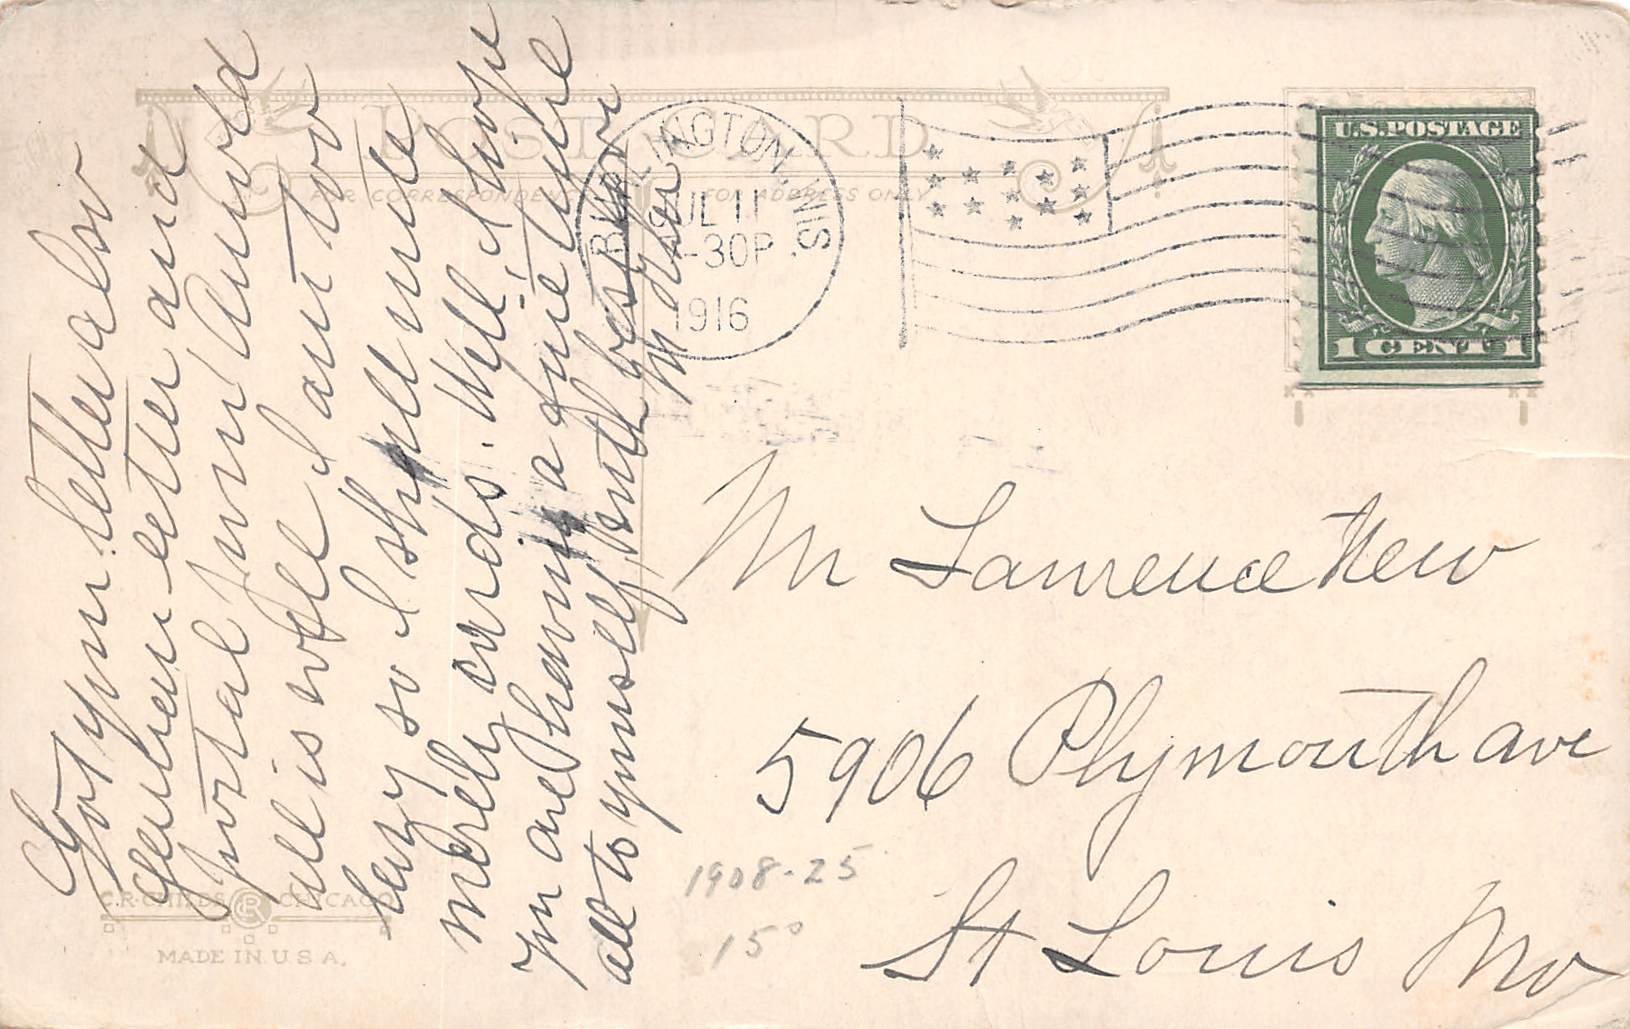 POST CARD
FOR CORRESPONDENCE
FOR ADDRESS ONLY
BURLINGTON, WIS.
JUL 11
-30P
1916
U.S. POSTAGE
1 CENT 1
Got your letter also
letter and
postal from Arnold
all is well I am too
lazy so I shall write
merely cards. Well, I hope
you are having a fine time
all to yourself, with best
Mr Lawrence New
5906 Plymouth ave
St Louis Mo
1908-25
15°
C.R. CHILDS CHICAGO
CR
MADE IN U.S.A.